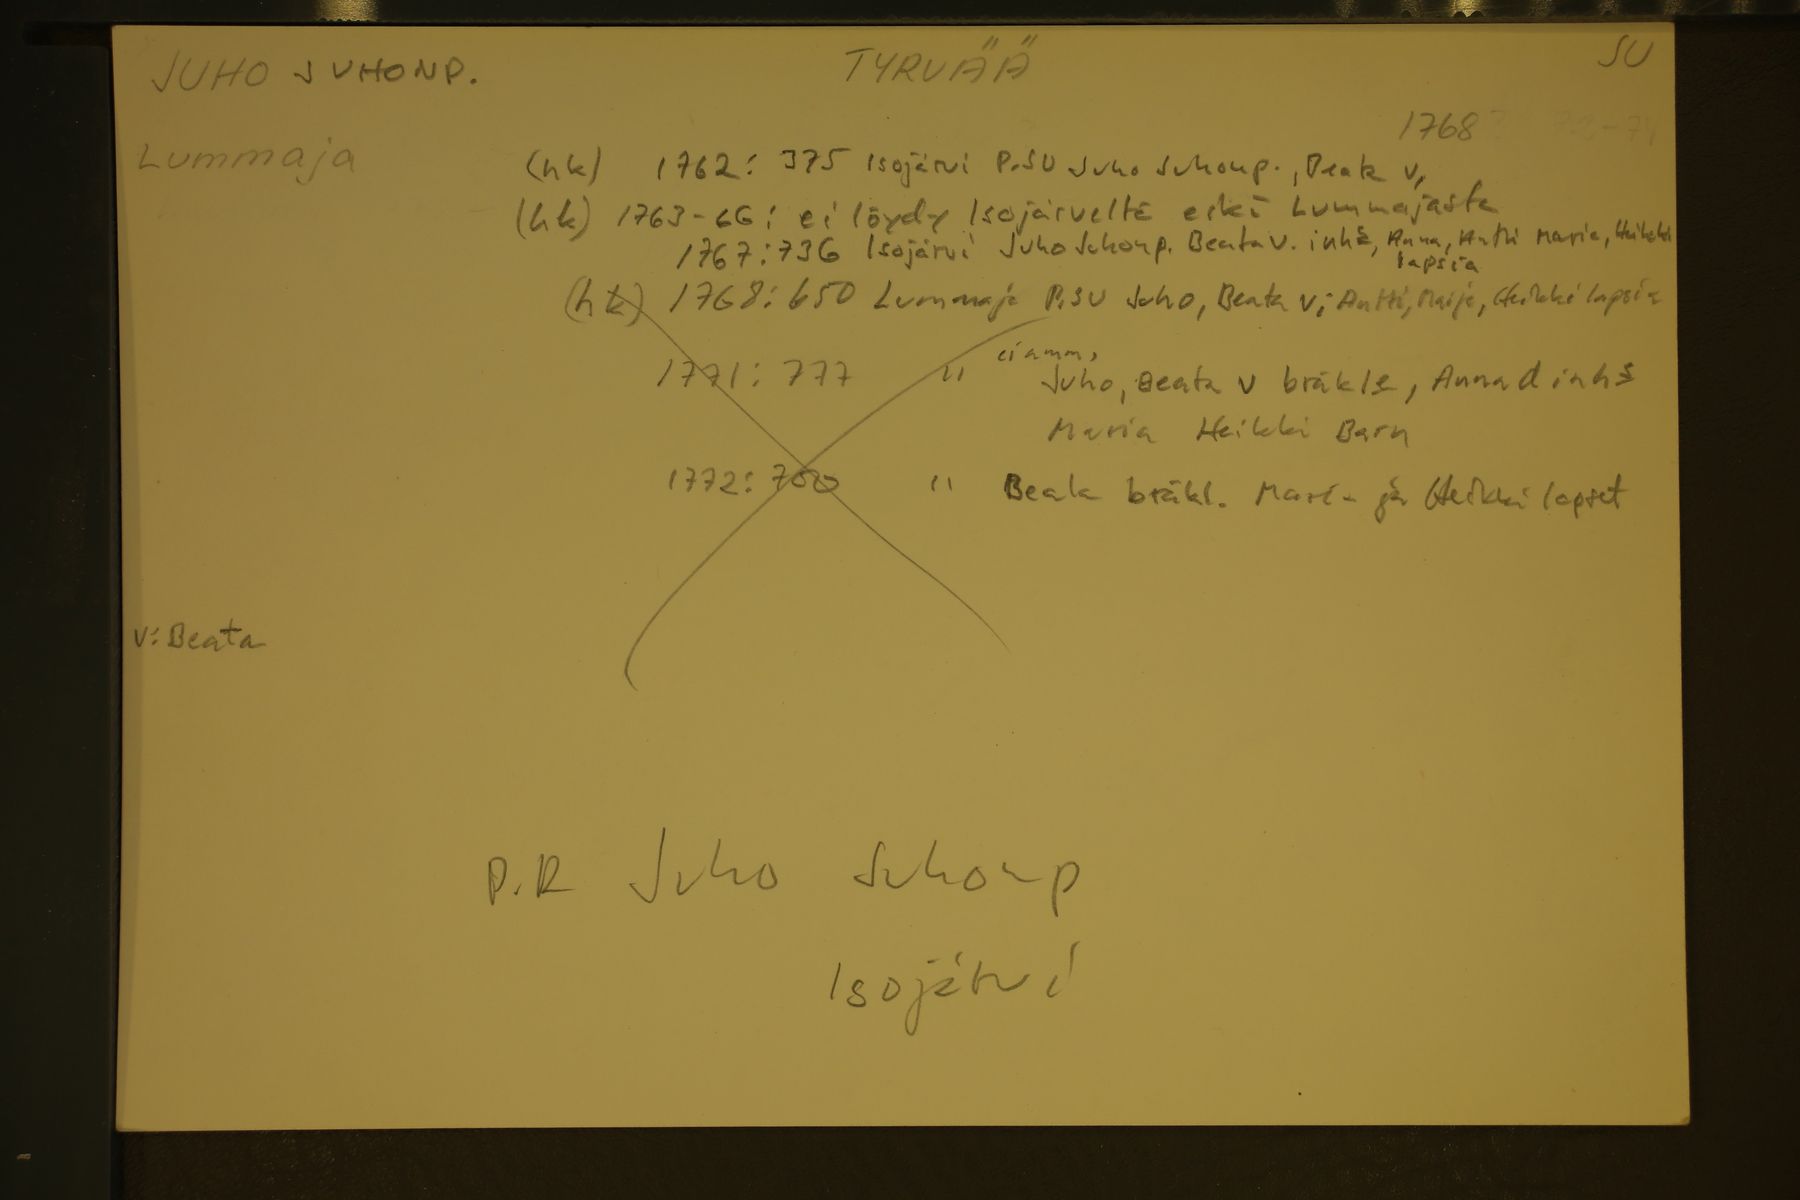 JUHO JUHONP. TYRVÄÄ SU
1768
Lummaja
(hk) 1762: 375 Isojärvi P.SU Juho Juhonp., Beata v,
(hk) 1763-66: ei löydy Isojärveltä eikä Lummajasta
1767:736 Isojärvi Juho Juhonp. Beata v. inhs, Anna, Antti Maria, Heikki
lapsia
(hk) 1768: 650 Lummaja P.SU Juho, Beata v; Antti, Maija, Heikki lapsia
1771: 777 " Juho, Beata v bräkls, Anna d inhs
Maria Heikki Barn
1772: 700 " Beata bräkl. Maria ja Heikki lapset
v: Beata
P.R Juho Juhonp
Isojärvi